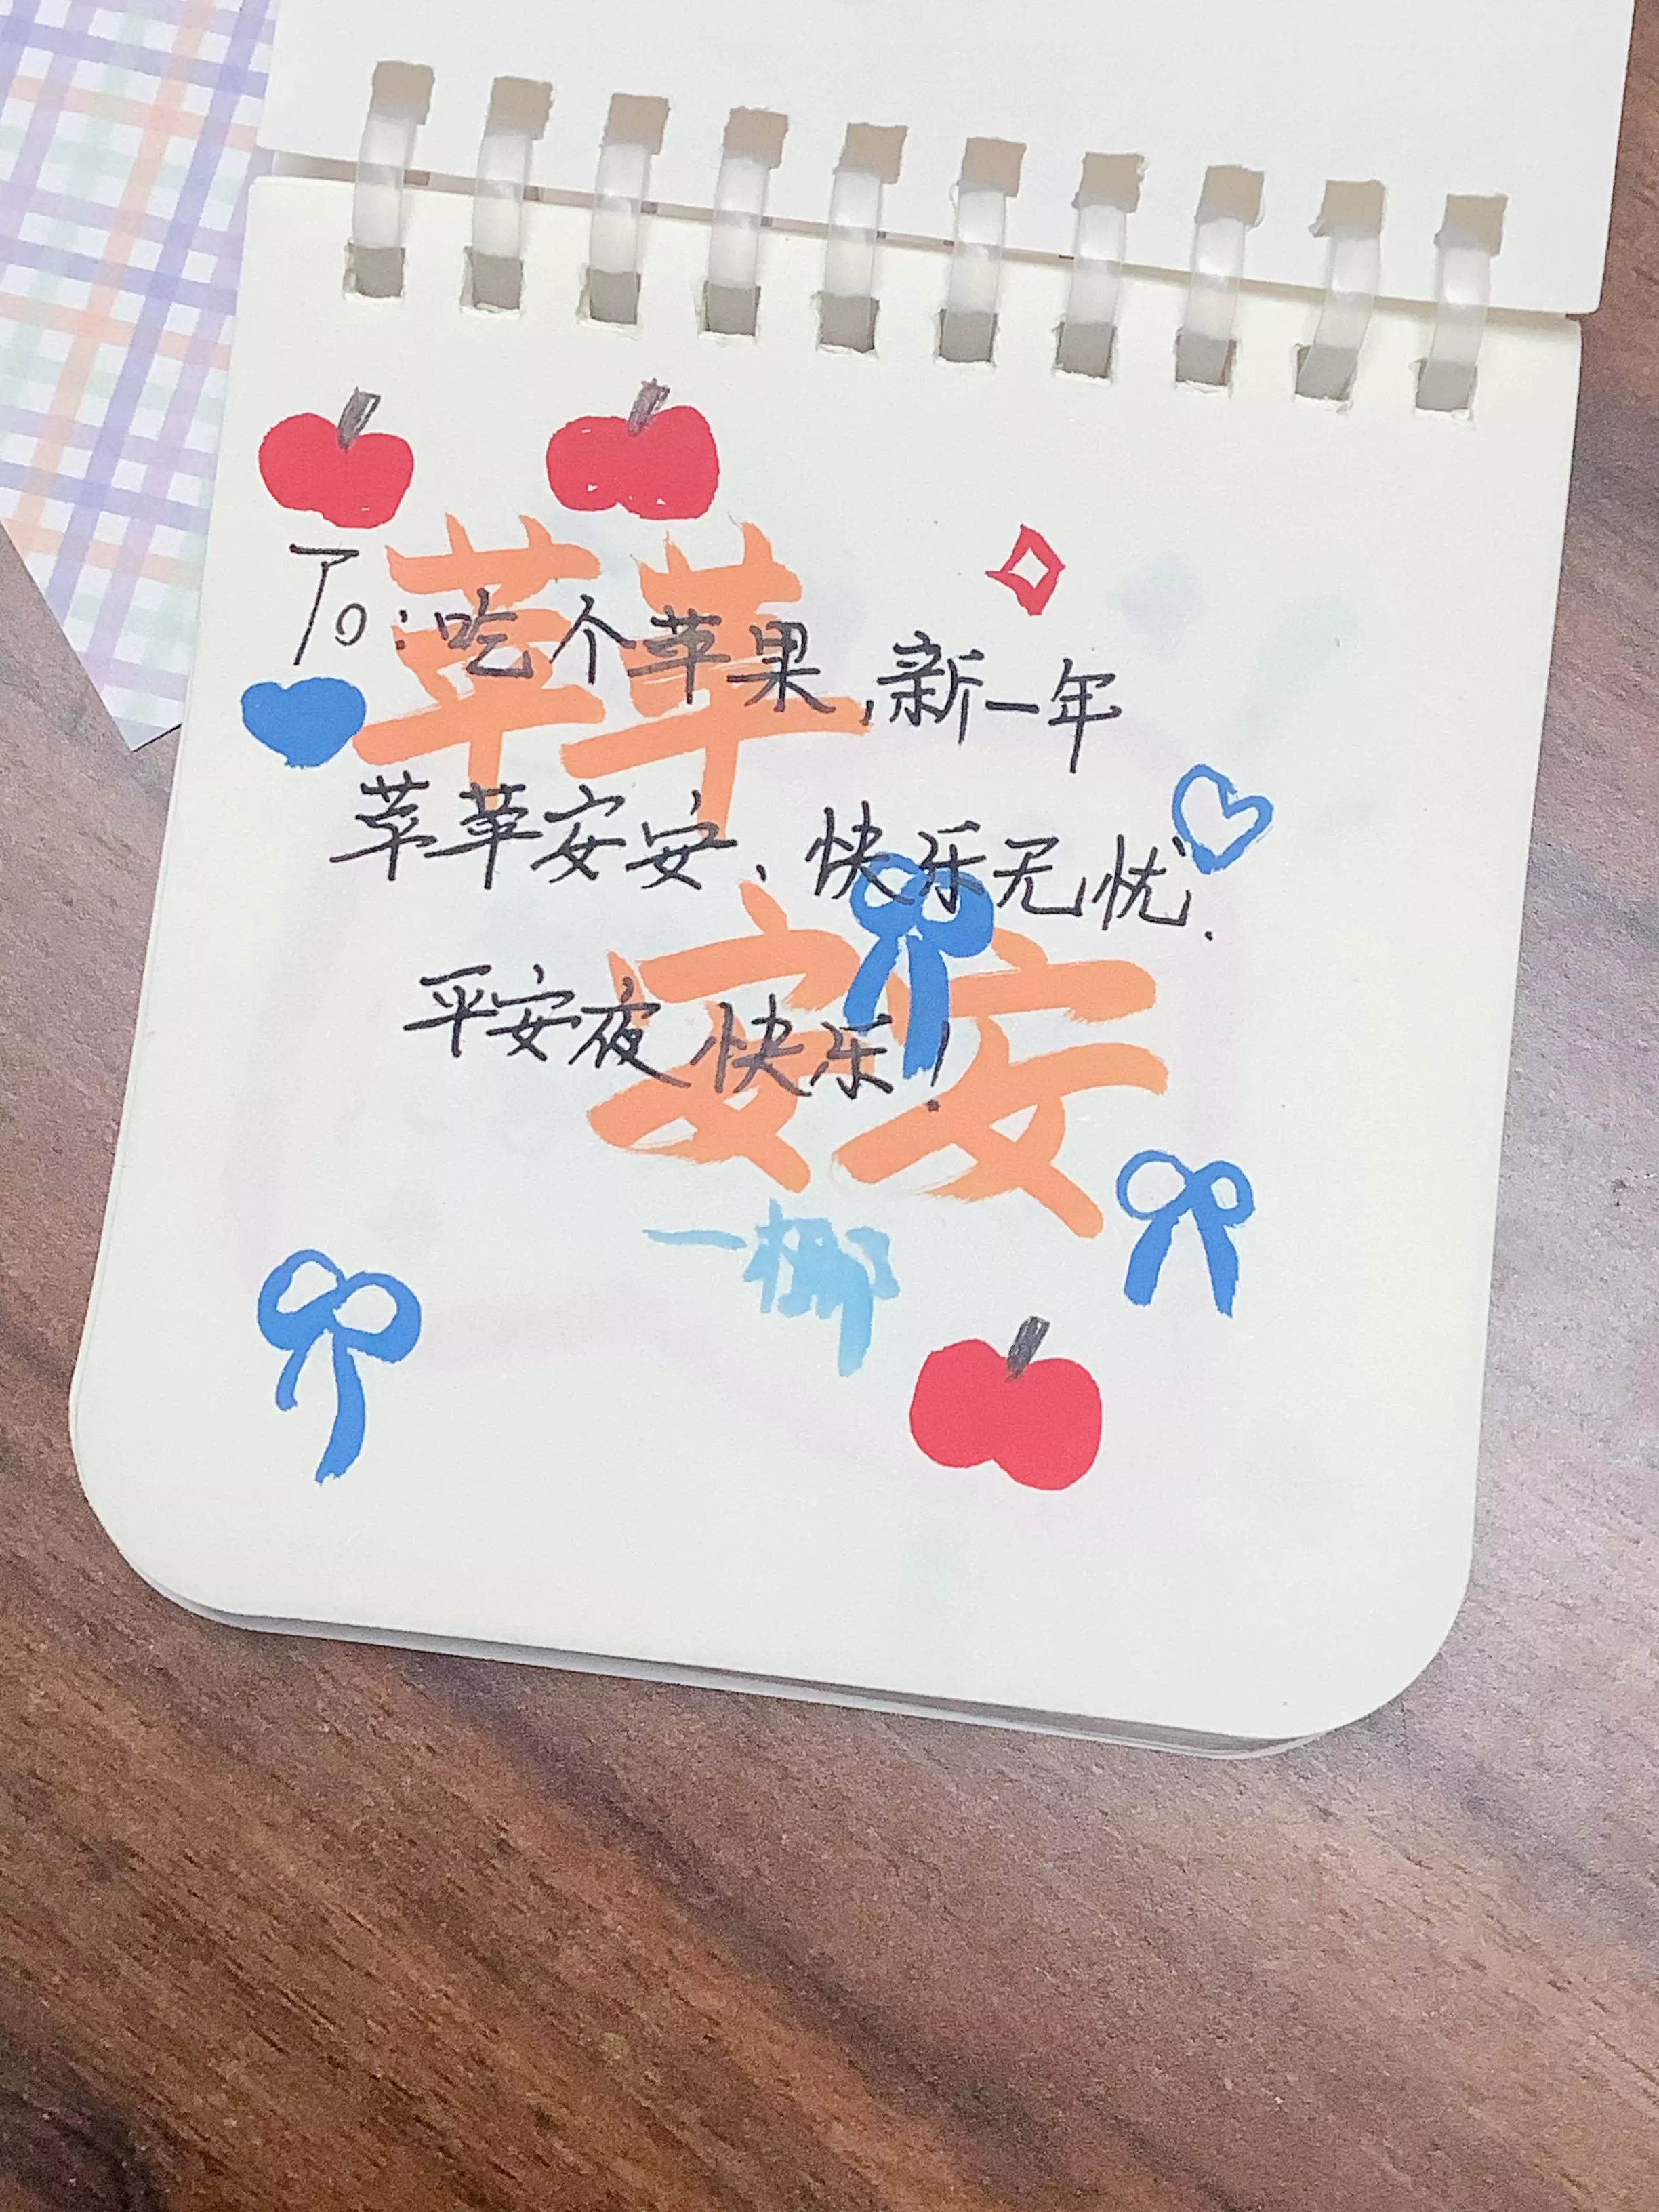 苹苹
To:吃个苹果,新一年
苹苹安安、快乐无忧.
安安
平安夜快乐!